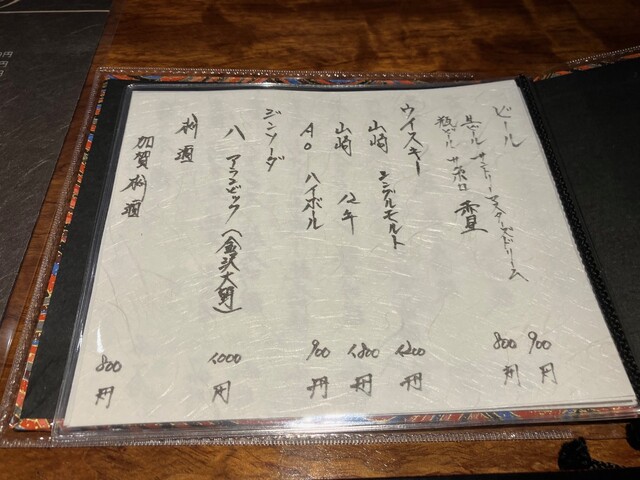 ビール
生ビール サントリーマスターズドリーム 900円
瓶ビール サッポロ 赤星 800円
ウイスキー
山崎 シングルモルト 1200円
山崎 12年 1800円
AO ハイボール 900円
ジンソーダ
八 アランビック (金沢大野) 1000円
梅酒
加賀梅酒 800円
円
円